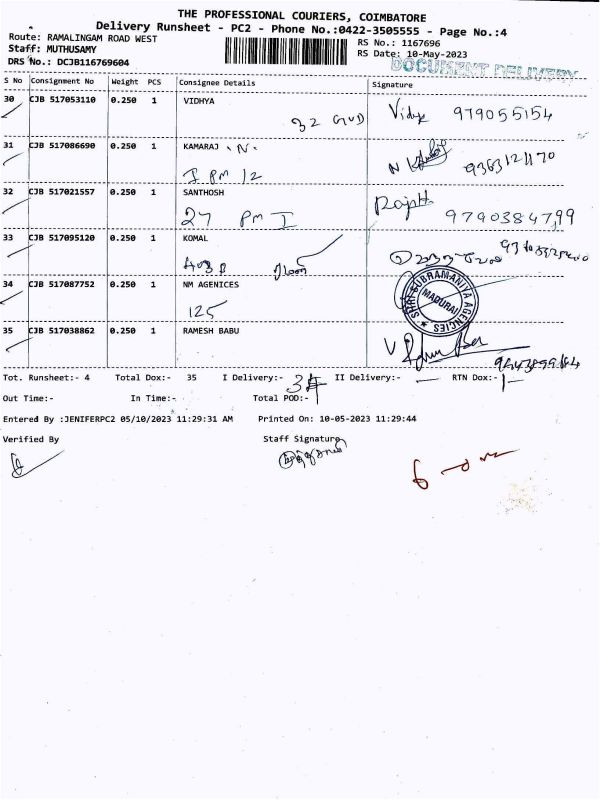 THE PROFESSIONAL COURIERS, COIMBATORE
Delivery Runsheet - PC2 - Phone No.:0422-3505555 - Page No.:4
Route: RAMALINGAM ROAD WEST
RS No.: 1167696
Staff: MUTHUSAMY
RS Date: 10-May-2023
DRS No.: DCJB116769604
DOCUMENT DELIVERY
S No Consignment No Weight PCS Consignee Details Signature
30 CJB 517053110 0.250 1 VIDHYA
32
31 CJB 517086690 0.250 1 KAMARAJ . N.
I PM 12
32 CJB 517021557 0.250 1 SANTHOSH
27 PM I
33 CJB 517095120 0.250 1 KOMAL
34 CJB 517087752 0.250 1 NM AGENICES
125
SHRI SUBRAMANIYA AGENCIES
MADURAI
35 CJB 517038862 0.250 1 RAMESH BABU
Tot. Runsheet:- 4 Total Dox:- 35 I Delivery:- II Delivery:- — RTN Dox:-
Out Time:- In Time:- Total POD:-
Entered By :JENIFERPC2 05/10/2023 11:29:31 AM Printed On: 10-05-2023 11:29:44
Verified By Staff Signature